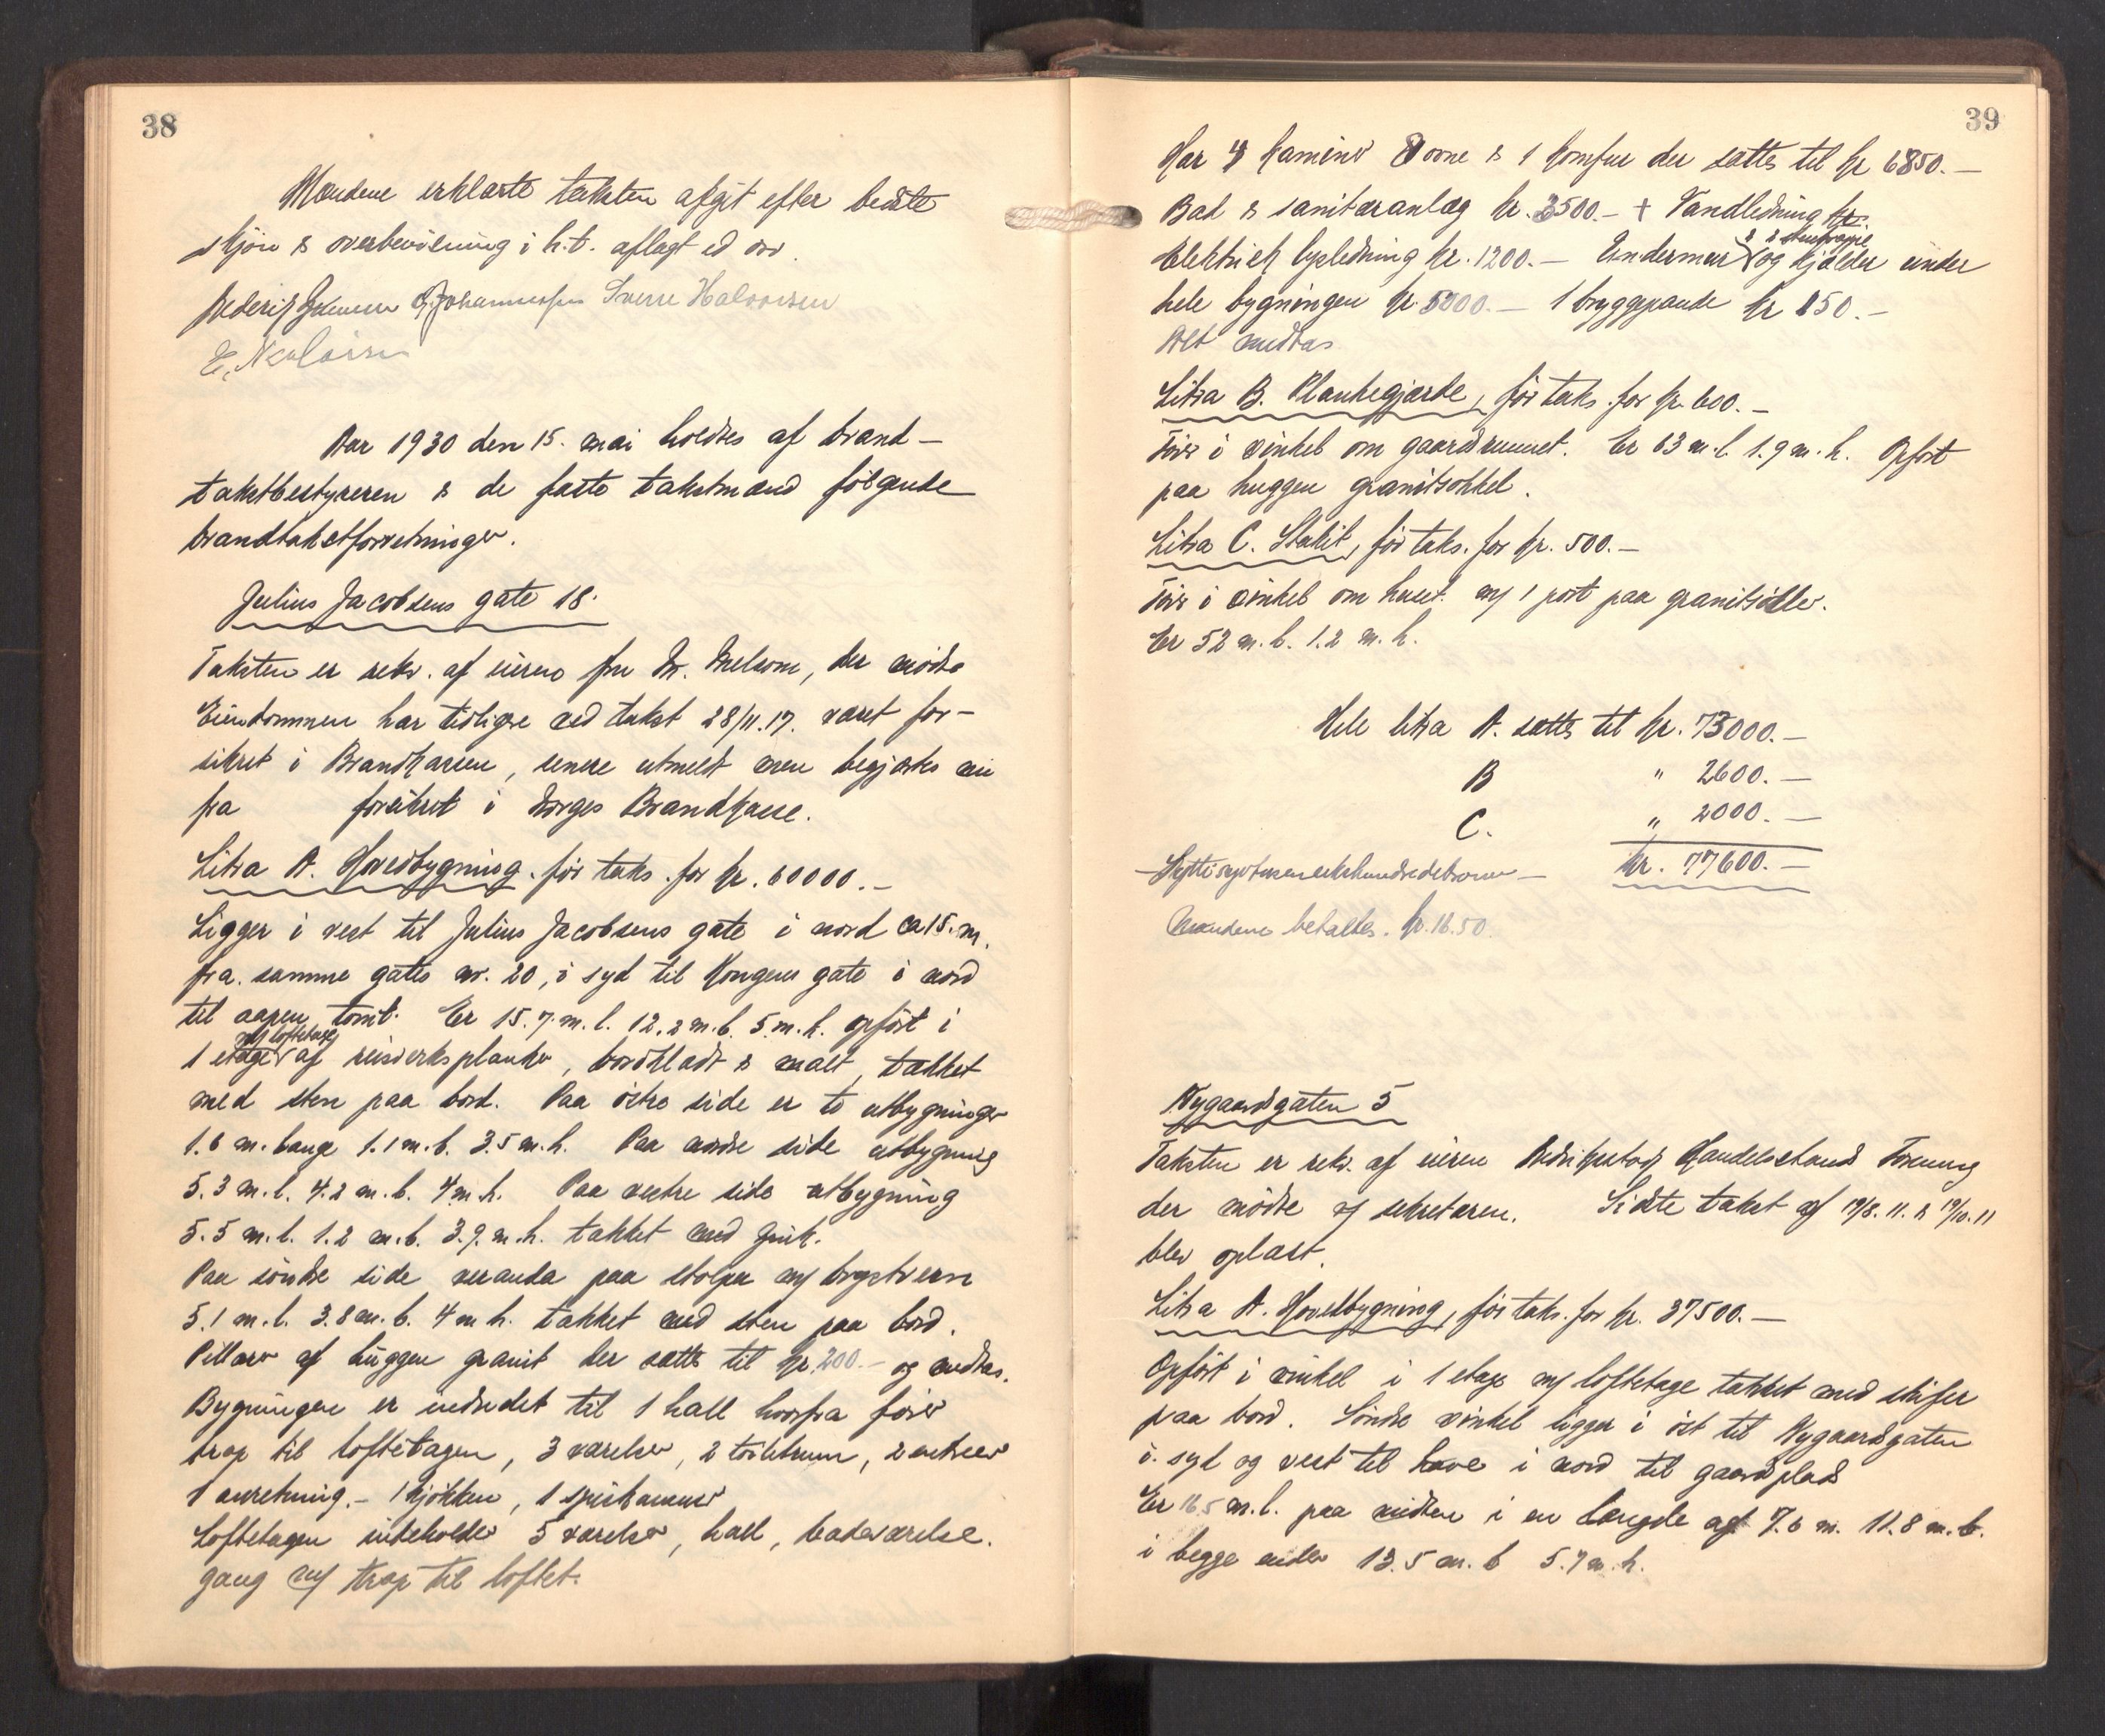 38
Mændene erklærte taksten afgit efter bedste
skjön & overbevisning i h.t. aflagt ed ovr.
Johannessen Sverre Halvorsen
Aar 1930 den 15. mai holdtes af brand-
takstbestyreren & de faste takstmænd fölgende
brandtakstforretninger.
Julius Jacobsens gate 18.
Taksten er rekv. af eieren fru M. Melsom, der mödte
Eiendommen har tidligere ved takst 28/11.17. været for-
sikret i Brandkassen, senere utmeldt men begjæres nu
fra forsikret i Norges Brandkasse.
Litra A. Hovedbygning. för taks. for kr. 60000.-
Ligger i vest til Julius Jacobsens gate i nord ca 15. m.
fra. samme gates nr. 20, i syd til Kongens gate i nord
til aapen tomt. Er 15.7. m. l. 12.2 m. b. 5. m. h. opfört i
1 etage m/ loftetage af reisverksplanker, bordklædt & malt, tækket
med sten paa bord. Paa östre side er to utbygninger
1.6 m. lange 1.1 m. b. 3.5 m. h. Paa nordre side utbygning
5.3 m. l. 4.2 m. b. 4 m. h. Paa vestre side utbygning
5.5 m. l. 1.2 m. b. 3.9. m. h. tækket med zink.
Paa söndre side veranda paa stolper m/ brystvern
5.1 m. l. 3.8 m. b. 4 m h. tækket med sten paa bord.
Pillarer af huggen granit der sættes til kr. 200.- og medtas.
Bygningen er indredet til 1 hall hvorfra förer
trap til loftetagen, 3 værelser, 2 toiletrum, 2 entreer
1 anretning.- 1 kjökken, 1 spiskammer
Loftetagen indeholder 5 værelser, hall, badeværelse.
gang m/ trap til loftet.
39
Har 4 kaminer 8 ovne & 1 komfur der sættes til kr 6850.-
Bad & sanitæranlæg kr. 3500.- + Vandledning kr.
Elektrisk lysledning kr. 1200.- Undermur & 2 stentrappe og kjælder under
hele bygningen kr 5000.- 1 bryggepande kr 150.-
Alt medtas
Litra B. Plankegjærde, för taks. for kr. 600.-
Förer i vinkel om gaardsrummet. Er 63 m. l. 1.9 m. h. Opfört
paa huggen granitsokkel.
Litra C. Stakit, för taks. for kr. 500.-
Förer i vinkel om huset. m/ 1 port paa granitstötter.
Er 52 m. l. 1.2 m. h.
Hele litra A. sættes til kr. 73000.-
B " 2600.-
C. " 2000.-
-Syttisyvtusensekshundredekroner- kr. 77600.-
Mændene betaltes. kr. 16.50.
Nygaardsgaten 5
Taksten er rekv. af eieren Fredrikstad Handelsstands Forening
der mödte ved sekretæren. Sidste takst af 19/8. 11. & 19/10. 11
blev oplæst.
Litra A. Hovedbygning, för taks. for kr. 37500.-
Opfört i vinkel i 1 etage m/ loftetage tækket med skifer
paa bord. Söndre vinkel ligger i öst til Nygaardsgaten
i. syd og vest til have i nord til gaardsplads
Er 16.5 m. l. paa midten i en længde af 7.6 m. 11.8 m. b.
i begge ender 13.5 m. b 5.7 m. h.